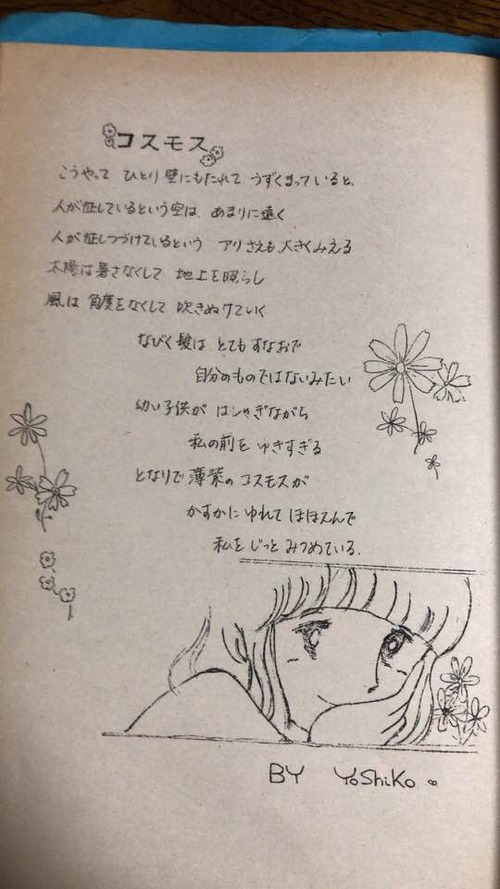 コスモス
こうやって ひとり 壁にもたれて うずくまっていると、
人が征しているという空は、あまりに遠く
人が征しつづけているという アリさえも 大きくみえる
太陽は暑さなくして 地上を照らし
風は 角度をなくして 吹きぬけていく
なびく髪は とても すなおで
自分のものではないみたい
幼い子供が はしゃぎながら
私の前を ゆきすぎる
となりで 薄紫の コスモスが
かすかに ゆれて ほほえんで
私を じっと みつめている.
BY YoShiKo